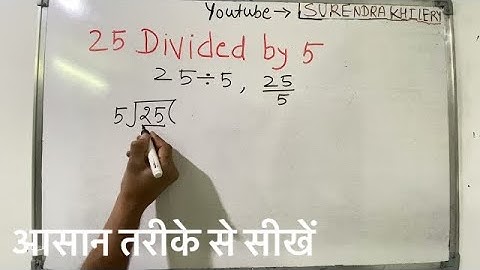 Youtube → SURENDRA KHILERY
25 Divided by 5
25÷5, 25/5
5)25(
आसान तरीके से सीखें